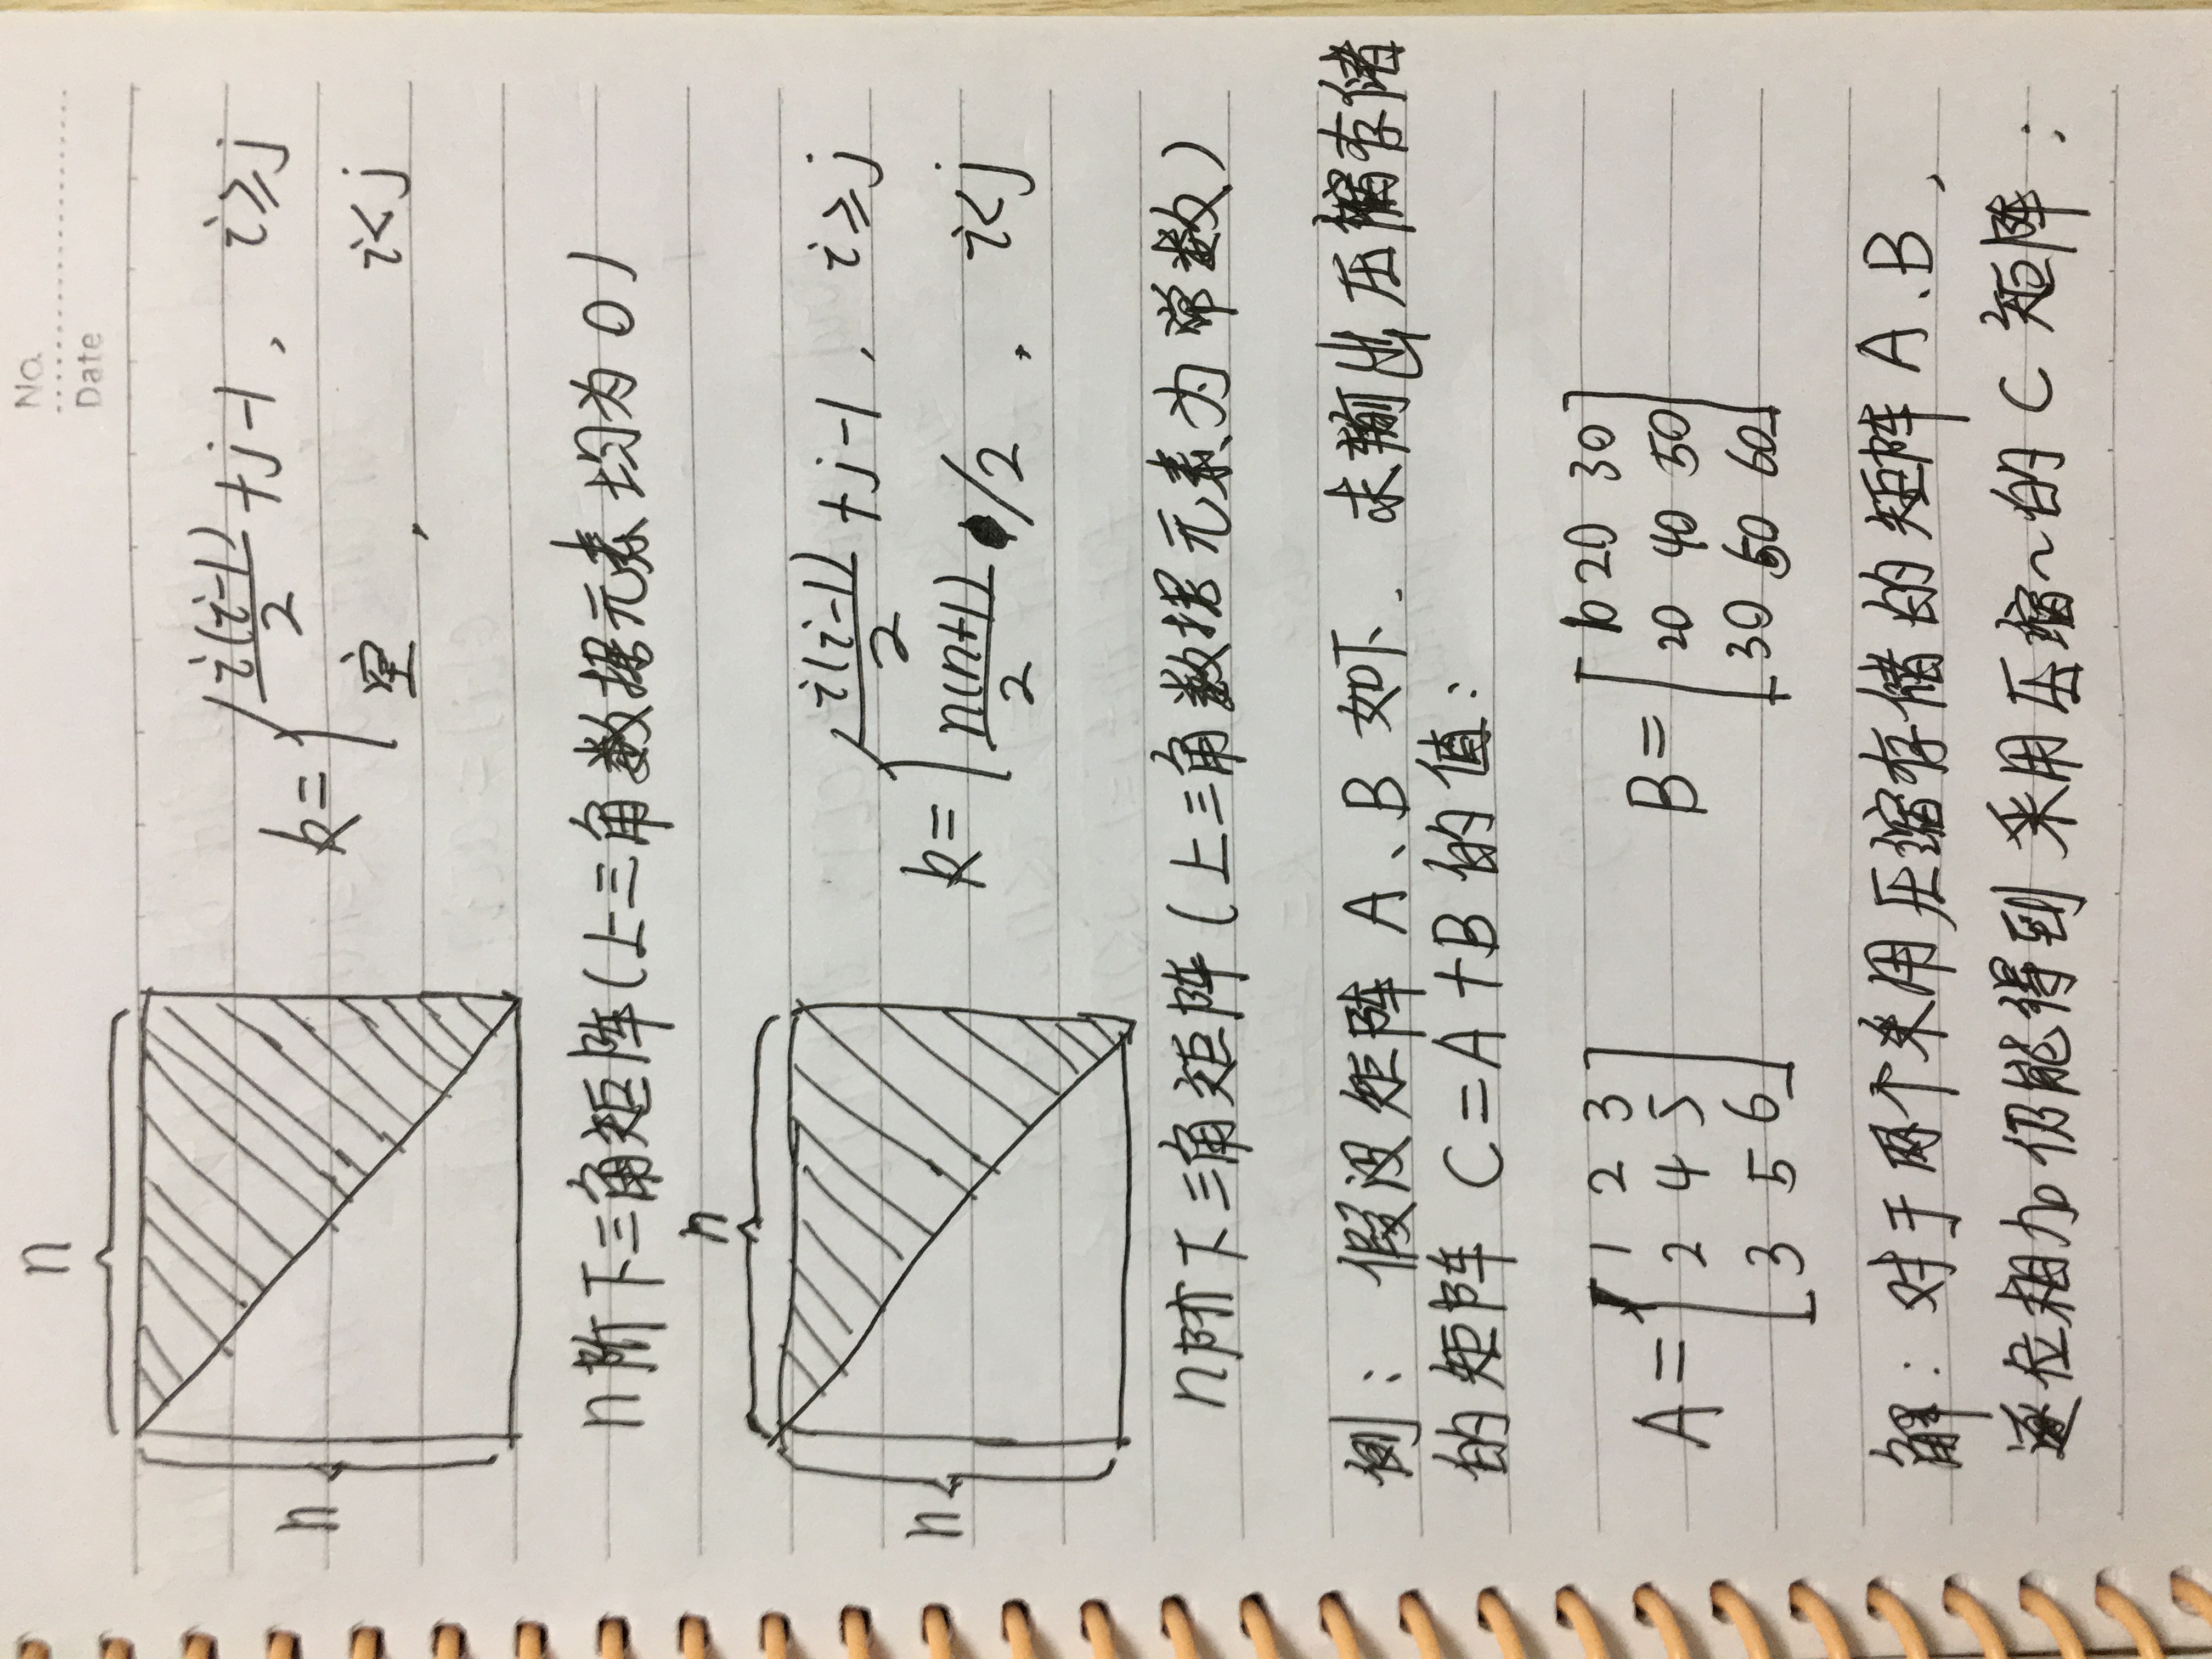 No.
Date
n
n
k = { i(i-1)/2 + j-1 , i≥j
空 , i<j
n阶下三角矩阵(上三角数据元素均为0)
n
n
k = { i(i-1)/2 + j-1 , i≥j
n(n+1)/2 /2 , i<j
n阶下三角矩阵(上三角数据元素为常数)
例: 假设矩阵 A、B 如下. 求输出压缩存储
的矩阵 C=A+B 的值:
A = [ 1 2 3
2 4 5
3 5 6 ]
B = [ 10 20 30
20 40 50
30 50 60 ]
解: 对于两个采用压缩存储的矩阵 A、B,
逐位相加仍能得到采用压缩~的 C 矩阵: